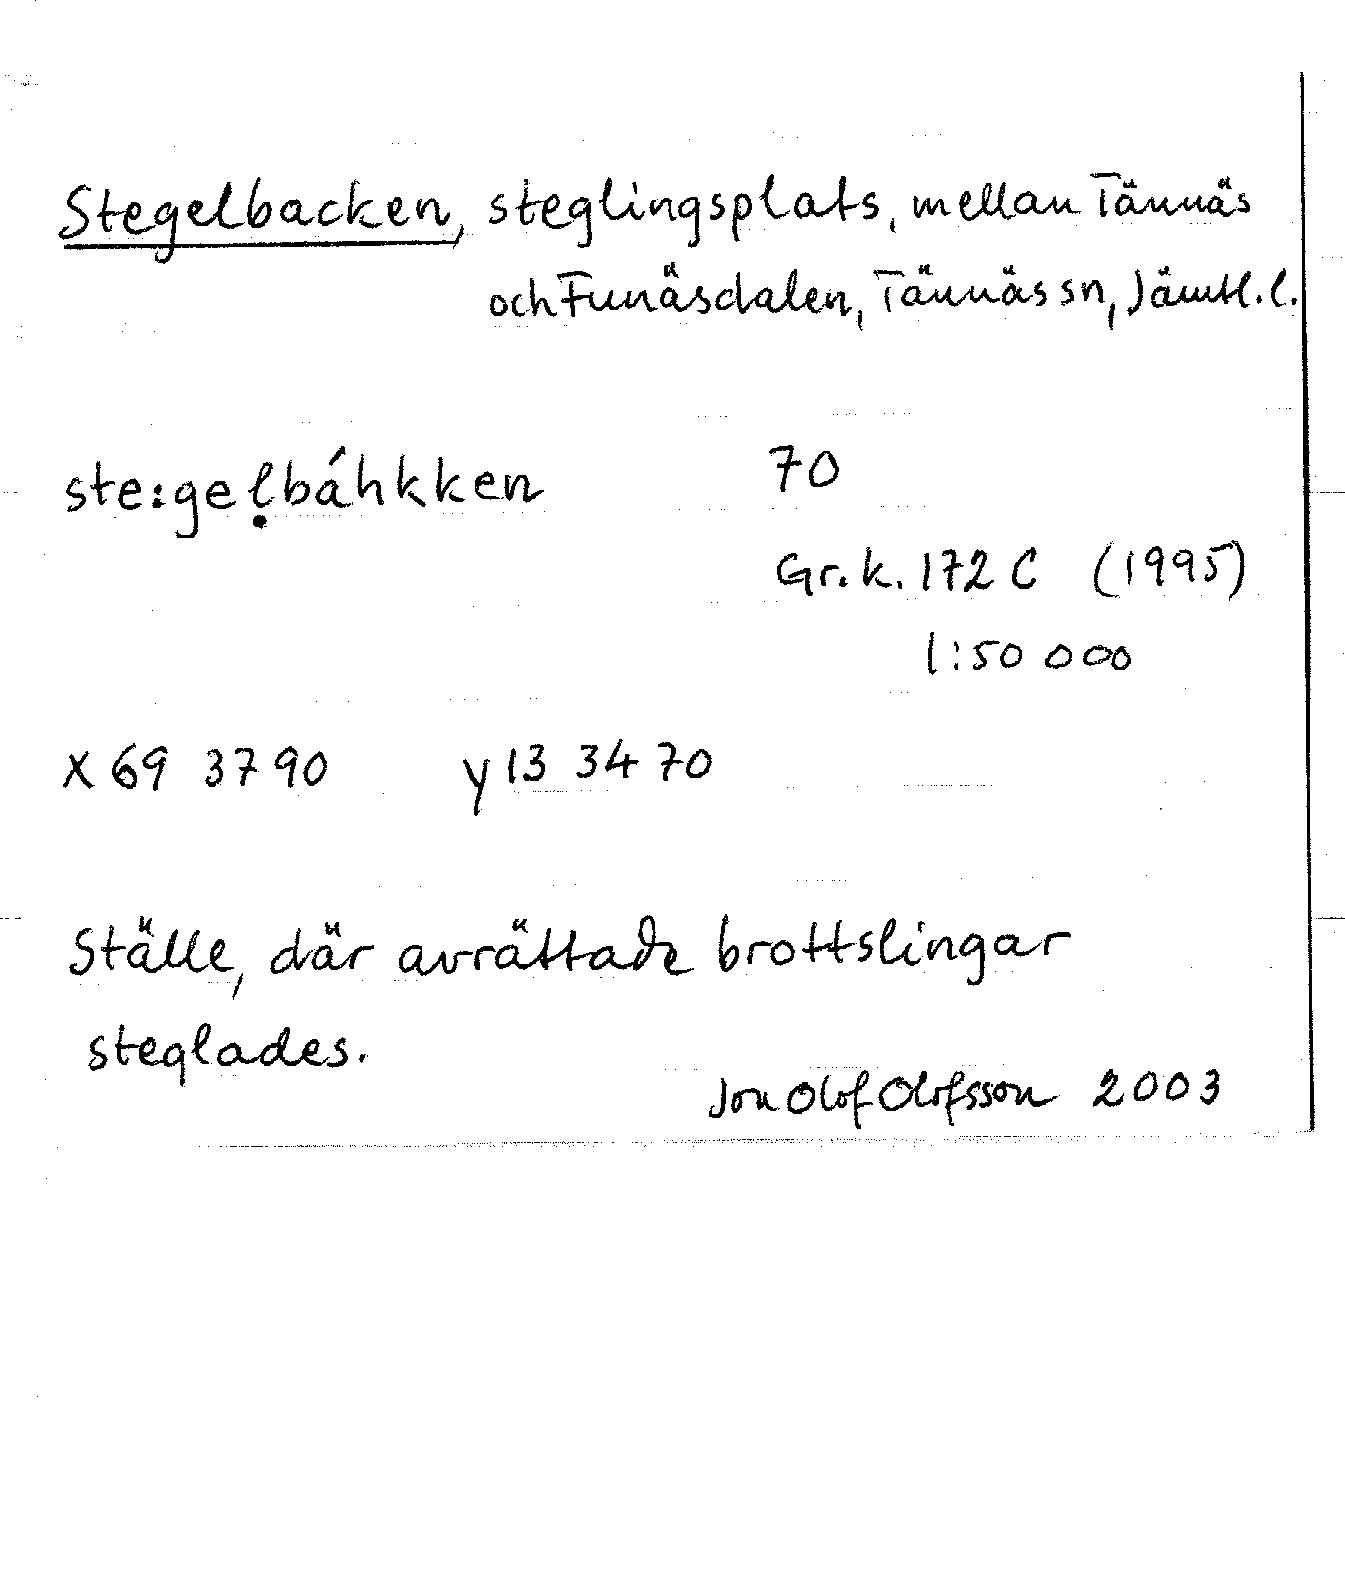 Stegelbacken, steglingsplats, mellan Tännäs
och Funäsdalen, Tännäs sn, Jämtl. l.
ste:geḷbáhkken 70
Gr.k. 172 C (1995)
1:50 000
x 69 37 90 y 13 34 70
Ställe, där avrättade brottslingar
steglades.
Jon Olof Olofsson 2003